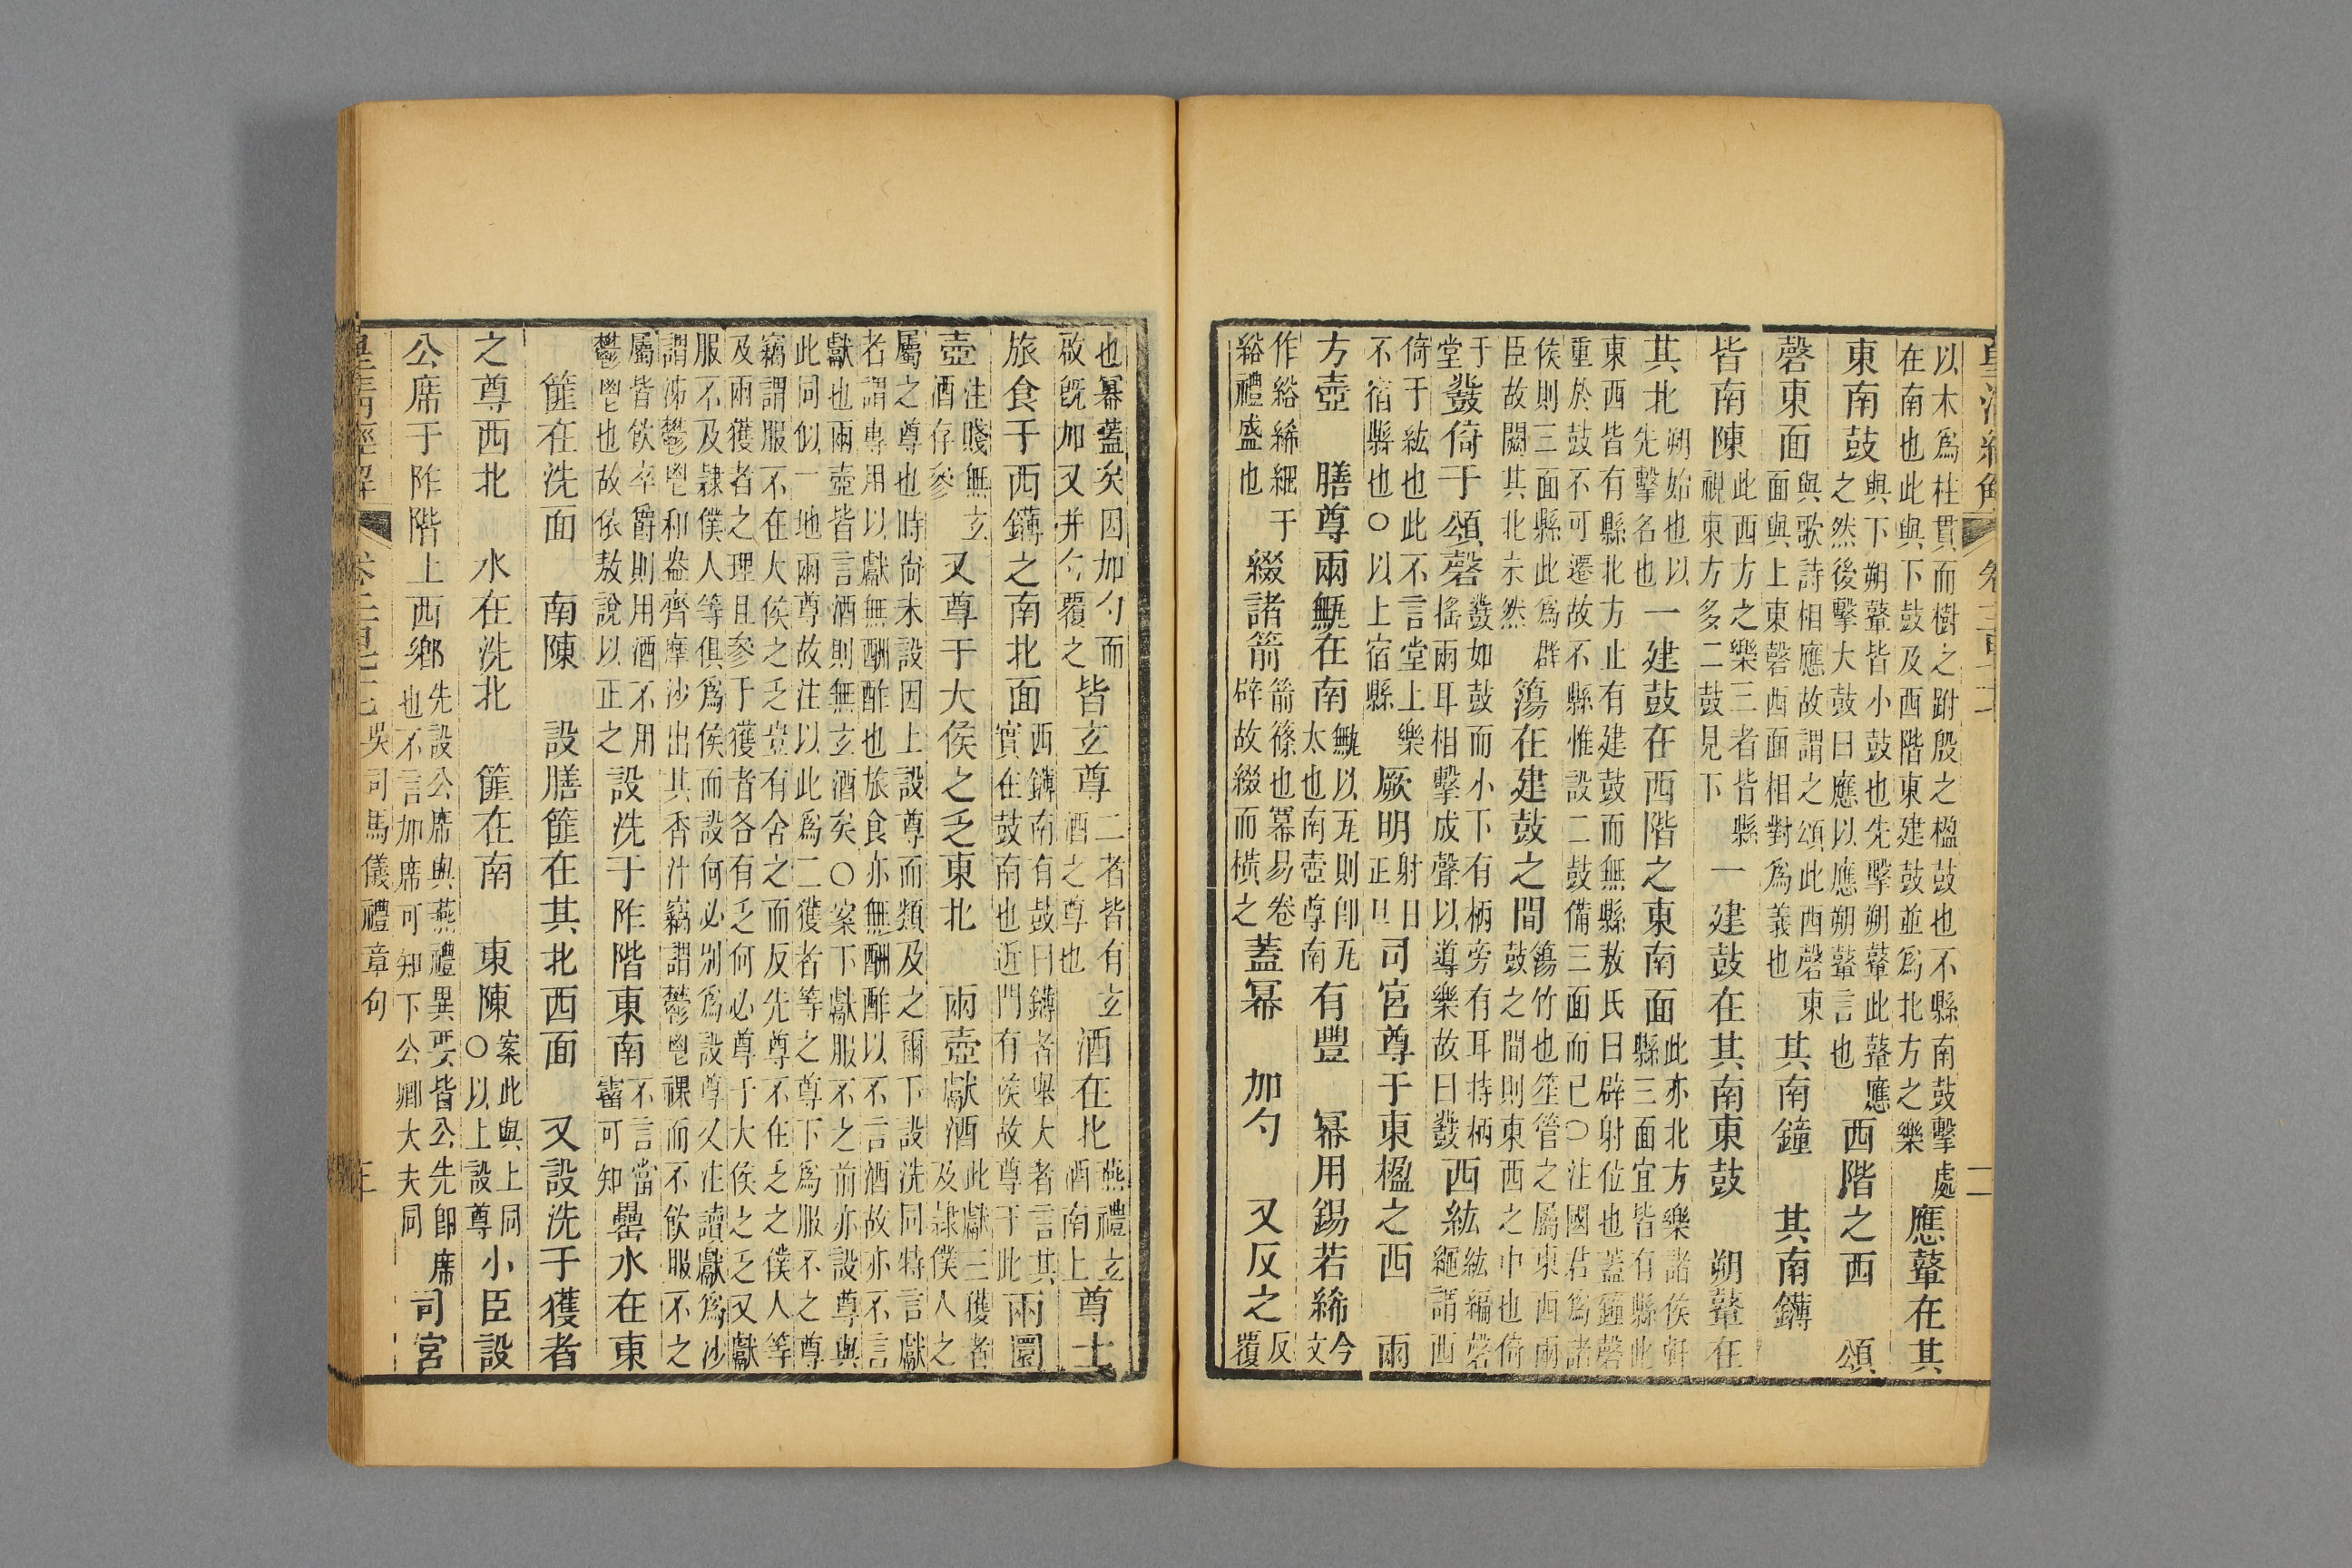 以木爲柱貫而樹之跗殷之楹鼓也不縣南鼓擊處在南也此與下鼓及西階東建鼓並爲北方之樂應鼙在其
東南鼓與下朔鼙皆小鼓也先擊朔鼙此鼙應之然後擊大鼓曰應以應朔鼙言也西階之西 頌
磬東面與歌詩相應故謂之頌此西磬東面與上東磬西面相對爲義也其南鐘 其南鑮
皆南陳此西方之樂三者皆縣視東方多二鼓見下一建鼓在其南東鼓 朔鼙在
其北朔始也以先擊名也一建鼓在西階之東南面此亦北方樂諸侯軒縣三面宜皆有縣此
東西皆有縣北方止有建鼓而無縣敖氏曰辟射位也蓋鐘磬重於鼓不可遷故不縣惟設二鼓備三面而已○注國君爲諸
侯則三面縣此爲群臣故闕其北未然簜在建鼓之間簜竹也笙管之屬東西兩鼓之間則東西之中也倚
于堂鼗倚于頌磬鼗如鼓而小下有柄旁有耳持柄搖兩耳相擊成聲以導樂故曰鼗西紘紘編磬繩謂西
倚于紘也此不言堂上樂不宿縣也○以上宿縣厥明射日正旦司宮尊于東楹之西 兩
方壺 膳尊兩甒在南甒以瓦則卽瓦太也南壺尊南有豐 冪用錫若絺今文
作綌絺細于綌禮盛也綴諸箭箭篠也冪易卷辟故綴而橫之蓋冪 加勺 又反之反覆
也冪蓋矣因加勺而啟旣加又并勺覆之皆玄尊二者皆有玄酒之尊也酒在北燕禮玄酒南上尊士
旅食于西鑮之南北面西鑮南有鼓曰鑮者舉大者言其實在鼓南也近門有侯故尊于此兩圜
壺注賤無玄酒存參又尊于大侯之乏東北 兩壺獻酒此獻三獲者及隷僕人之
屬之尊也時尙未設因上設尊而類及之爾下設洗同特言獻者謂專用以獻無酬酢也旅食亦無酬酢以不言酒故亦不言
獻也兩壺皆言酒則無玄酒矣○案下獻服不之前亦設尊與此同似一地兩尊故注以此爲二獲者等之尊下爲服不之尊
竊謂服不在大侯之乏豈有舍之而反先尊不在乏之僕人等及兩獲者之理且參于獲者各有乏何必尊于大侯之乏又獻
服不及隷僕人等俱爲侯而設何必別爲設尊又注讀獻爲沙謂沸鬱鬯和盎齊摩沙出其香汁竊謂鬱鬯祼而不飲服不之
屬皆飲卒爵則用酒不用鬱鬯也故依敖說以正之設洗于阼階東南不言當霤可知罍水在東
篚在洗面 南陳 設膳篚在其北西面 又設洗于獲者
之尊西北 水在洗北 篚在南 東陳案此與上同○以上設尊小臣設
公席于阼階上西鄉先設公席與燕禮異要皆公先卽席也不言加席可知下公卿大夫同司宮
吳司馬儀禮章句